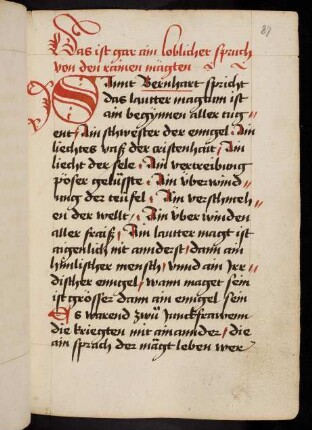 87
Das ist gar ain loblicher spruch
von den rainen mägten
Sannt Bernhart spricht
das lautter magtum ist
ain begynnen aller tug
ent / Ain schwester der enngel / Ain
liechtes vaß der cristenhait / Ain
liecht der sele / Ain vertreibung
pöser gelüste / Ain überwind
ung der teüfel / Ain verschmech
en der wellt / Ain über winden
aller / Ain lautter magt ist
aigenlich nit annderst / dann ain
himlischer mensch / vnnd ain Irr
discher enngel / wann maget sein
ist grösser dann ain enngel sein
Es warend zwü Junckfrawenn
die kriegten mit ainannder / die
ain sprach der mägt leben wer